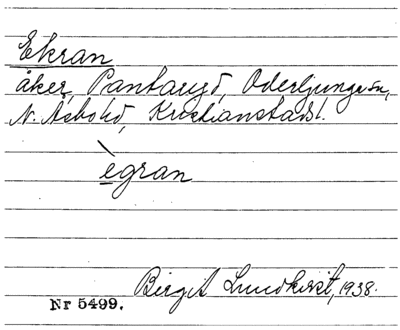 Ekran
åker, Pantaryd, Oderljunga sn,
N. Åsbo hd, Kristianstads l.
ègran
Birgit Lundkvist, 1938.
Nr 5499.